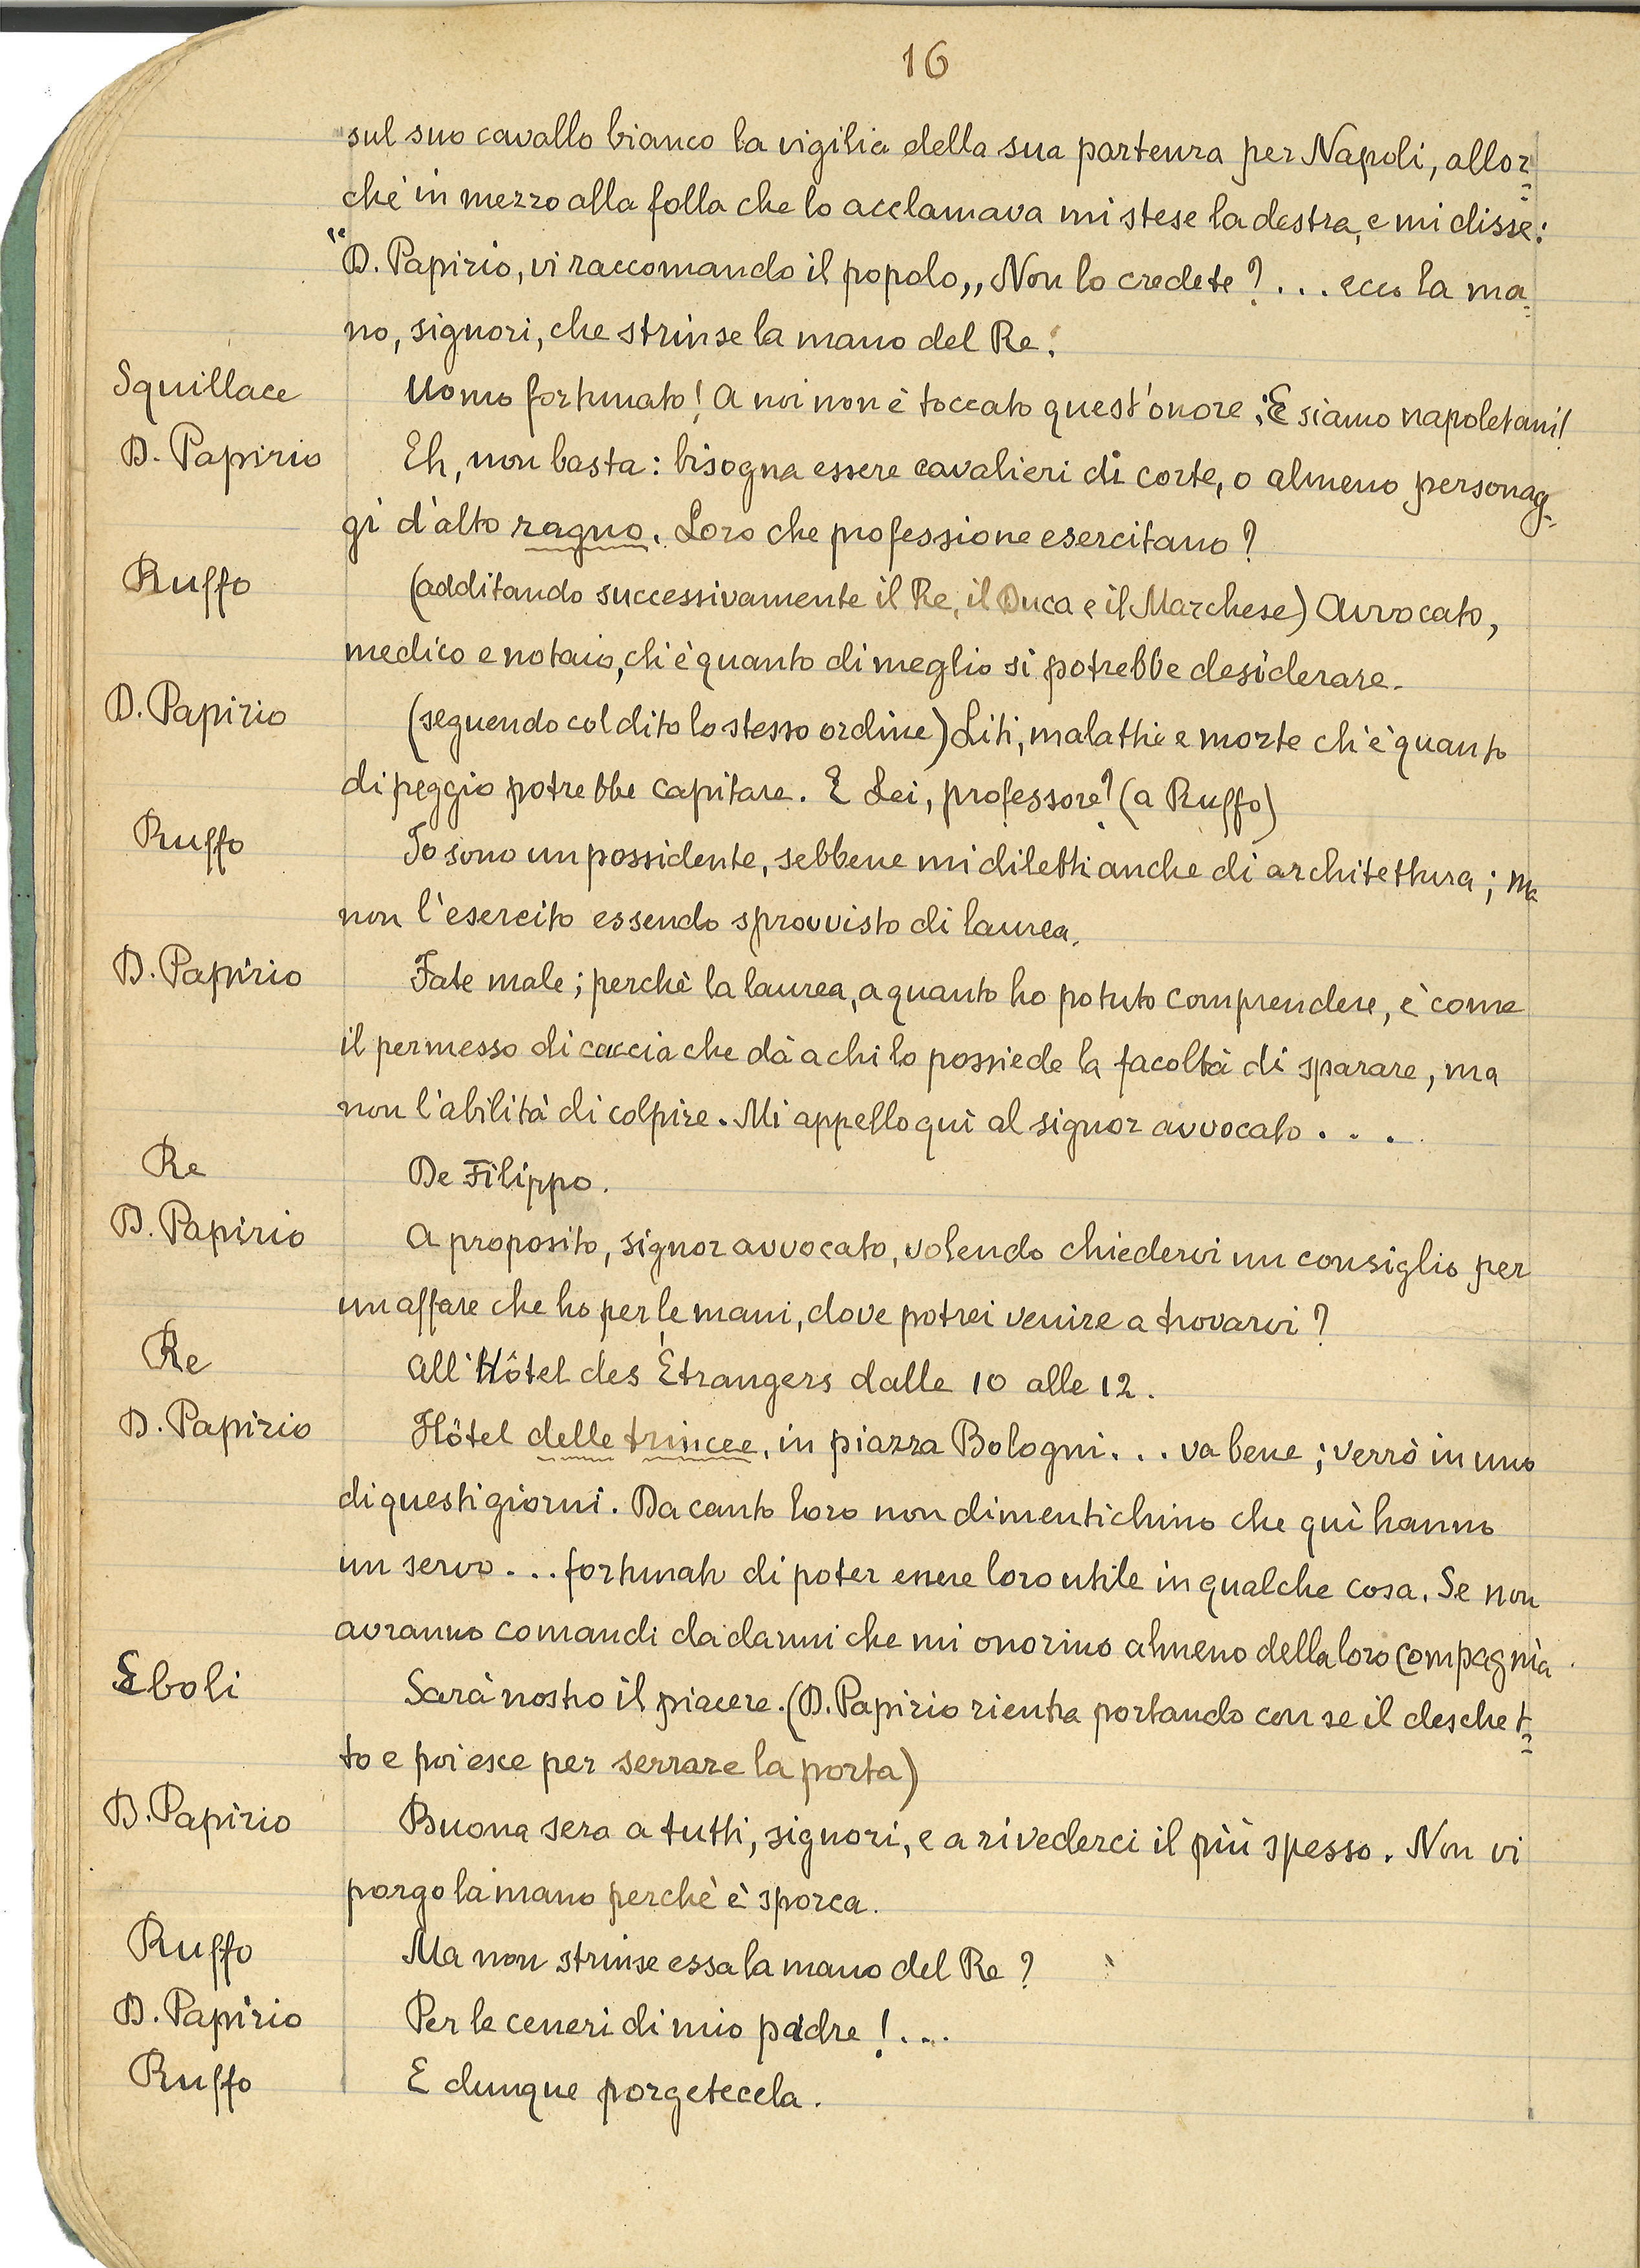 16
sul suo cavallo bianco la vigilia della sua partenza per Napoli, allor=
chè in mezzo alla folla che lo acclamava mi stese la destra, e mi disse:
"D. Papirio, vi raccomando il popolo,, Non lo credete? . . . ecco la ma=
no, signori, che strinse la mano del Re.
Squillace Uomo fortunato! A noi non è toccato quest'onore; E siamo napoletani!
D. Papirio Eh, non basta: bisogna essere cavalieri di corte, o almeno personag=
gi d'alto ragno. Loro che professione esercitano?
Ruffo (additando successivamente il Re, il Duca e il Marchese) Avvocato,
medico e notaio, ch'è quanto di meglio si potrebbe desiderare.
D. Papirio (seguendo col dito lo stesso ordine) Liti, malattie e morte ch'è quanto
di peggio potrebbe capitare. E Lei, professore? (a Ruffo)
Ruffo Io sono un possidente, sebbene mi diletti anche di architettura; ma
non l'esercito essendo sprovvisto di laurea.
D. Papirio Fate male; perchè la laurea, a quanto ho potuto comprendere, è come
il permesso di caccia che dà a chi lo possiede la facoltà di sparare, ma
non l'abilità di colpire. Mi appello quì al signor avvocato . . .
Re De Filippo.
D. Papirio A proposito, signor avvocato, volendo chiedervi un consiglio per
un affare che ho per le mani, dove potrei venire a trovarvi?
Re All'Hôtel des Étrangers dalle 10 alle 12.
D. Papirio Hôtel delle trincee, in piazza Bologni . . . va bene; verrò in uno
di questi giorni. Da canto loro non dimentichino che quì hanno
un servo . . . fortunato di poter essere loro utile in qualche cosa. Se non
avranno comandi da darmi che mi onorino almeno della loro compagnìa.
Eboli Sarà nostro il piacere. (D. Papirio rientra portando con se il deschet=
to e poi esce per serrare la porta)
D. Papirio Buona sera a tutti, signori, e a rivederci il più spesso. Non vi
porgo la mano perchè è sporca.
Ruffo Ma non strinse essa la mano del Re?
D. Papirio Per le ceneri di mio padre! . . .
Ruffo E dunque porgetecela.